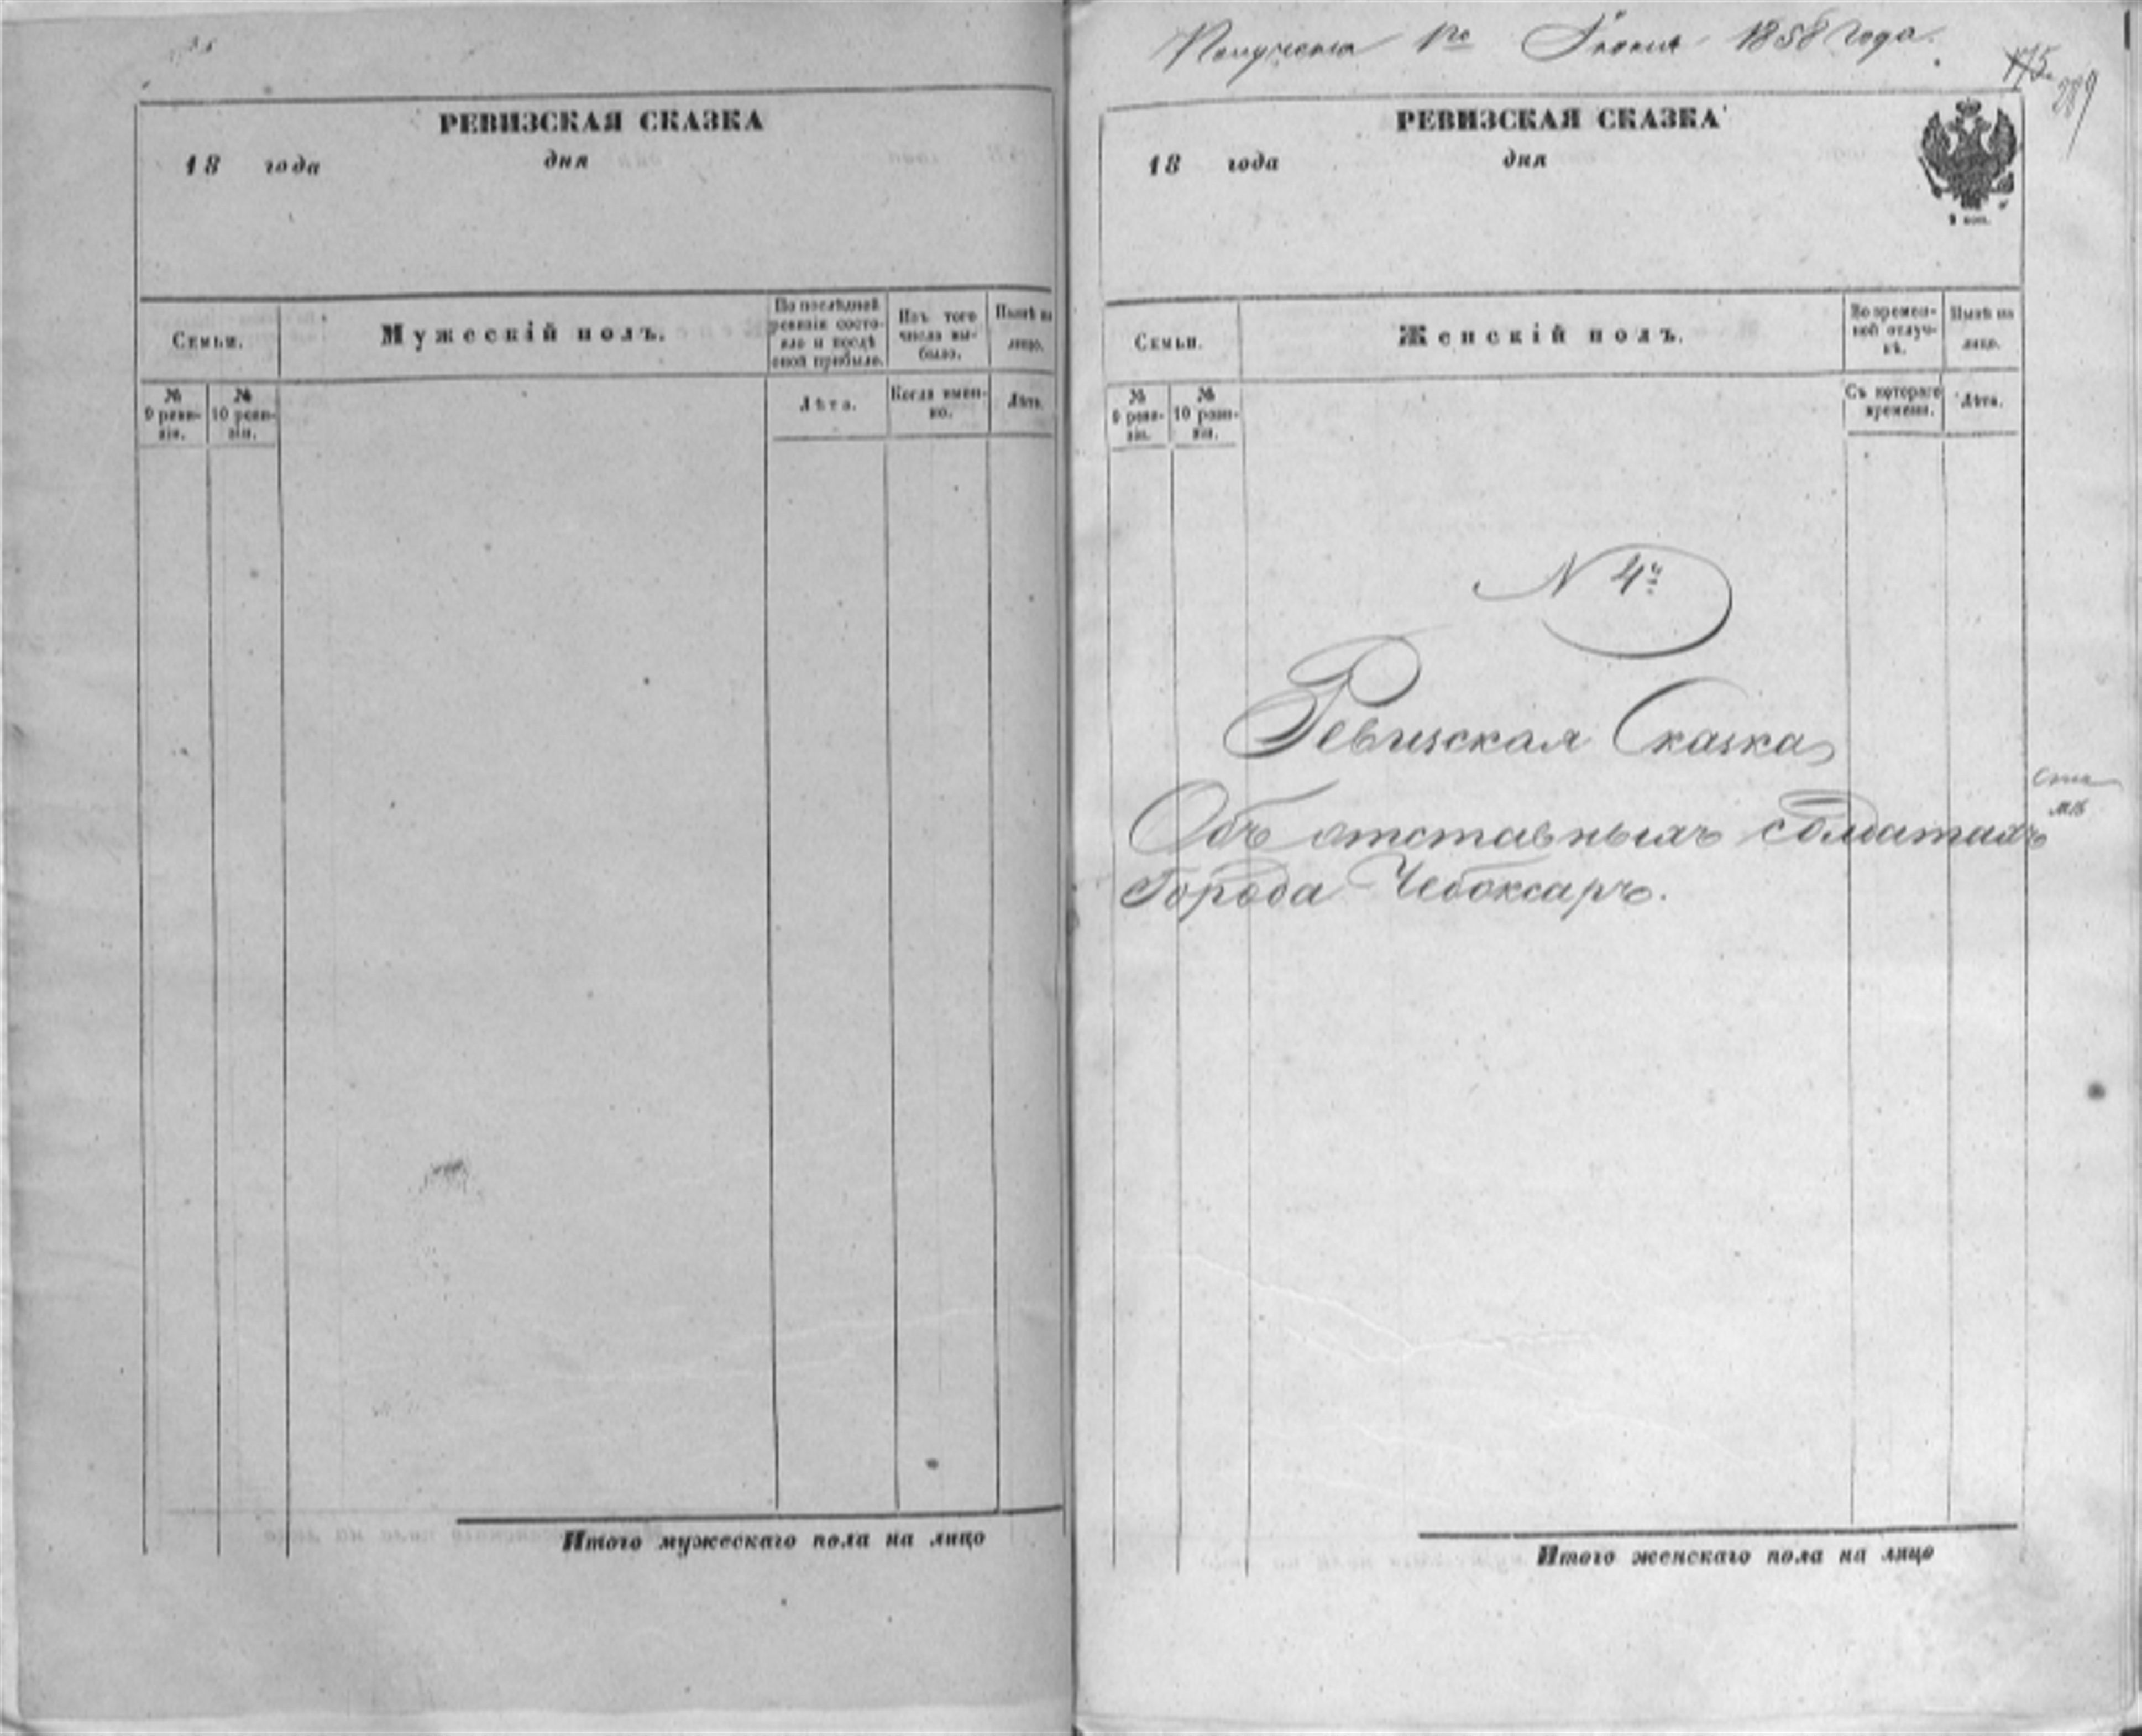 РЕВИЗСКАЯ СКАЗКА
18 года дня
Семьи.
Мужескій полъ.
По послѣдней ревизіи состояло и послѣ оной прибыло.
Изъ того числа выбыло.
Нынѣ на лицо.
№ 9 ревизіи.
№ 10 ревизіи.
Лѣта.
Когда именно.
Лѣта.
Итого мужескаго пола на лицо
Получена 1го Іюня 1858 года.
175.
289
РЕВИЗСКАЯ СКАЗКА
18 года дня
Семьи.
Женскій полъ.
Во временной отлучкѣ.
Нынѣ на лицо.
№ 9 ревизіи.
№ 10 ревизіи.
Съ котораго времени.
Лѣта.
N 4й
Ревизская Сказка
Объ отставныхъ солдатахъ
Города Чебоксаръ.
Итого женскаго пола на лицо